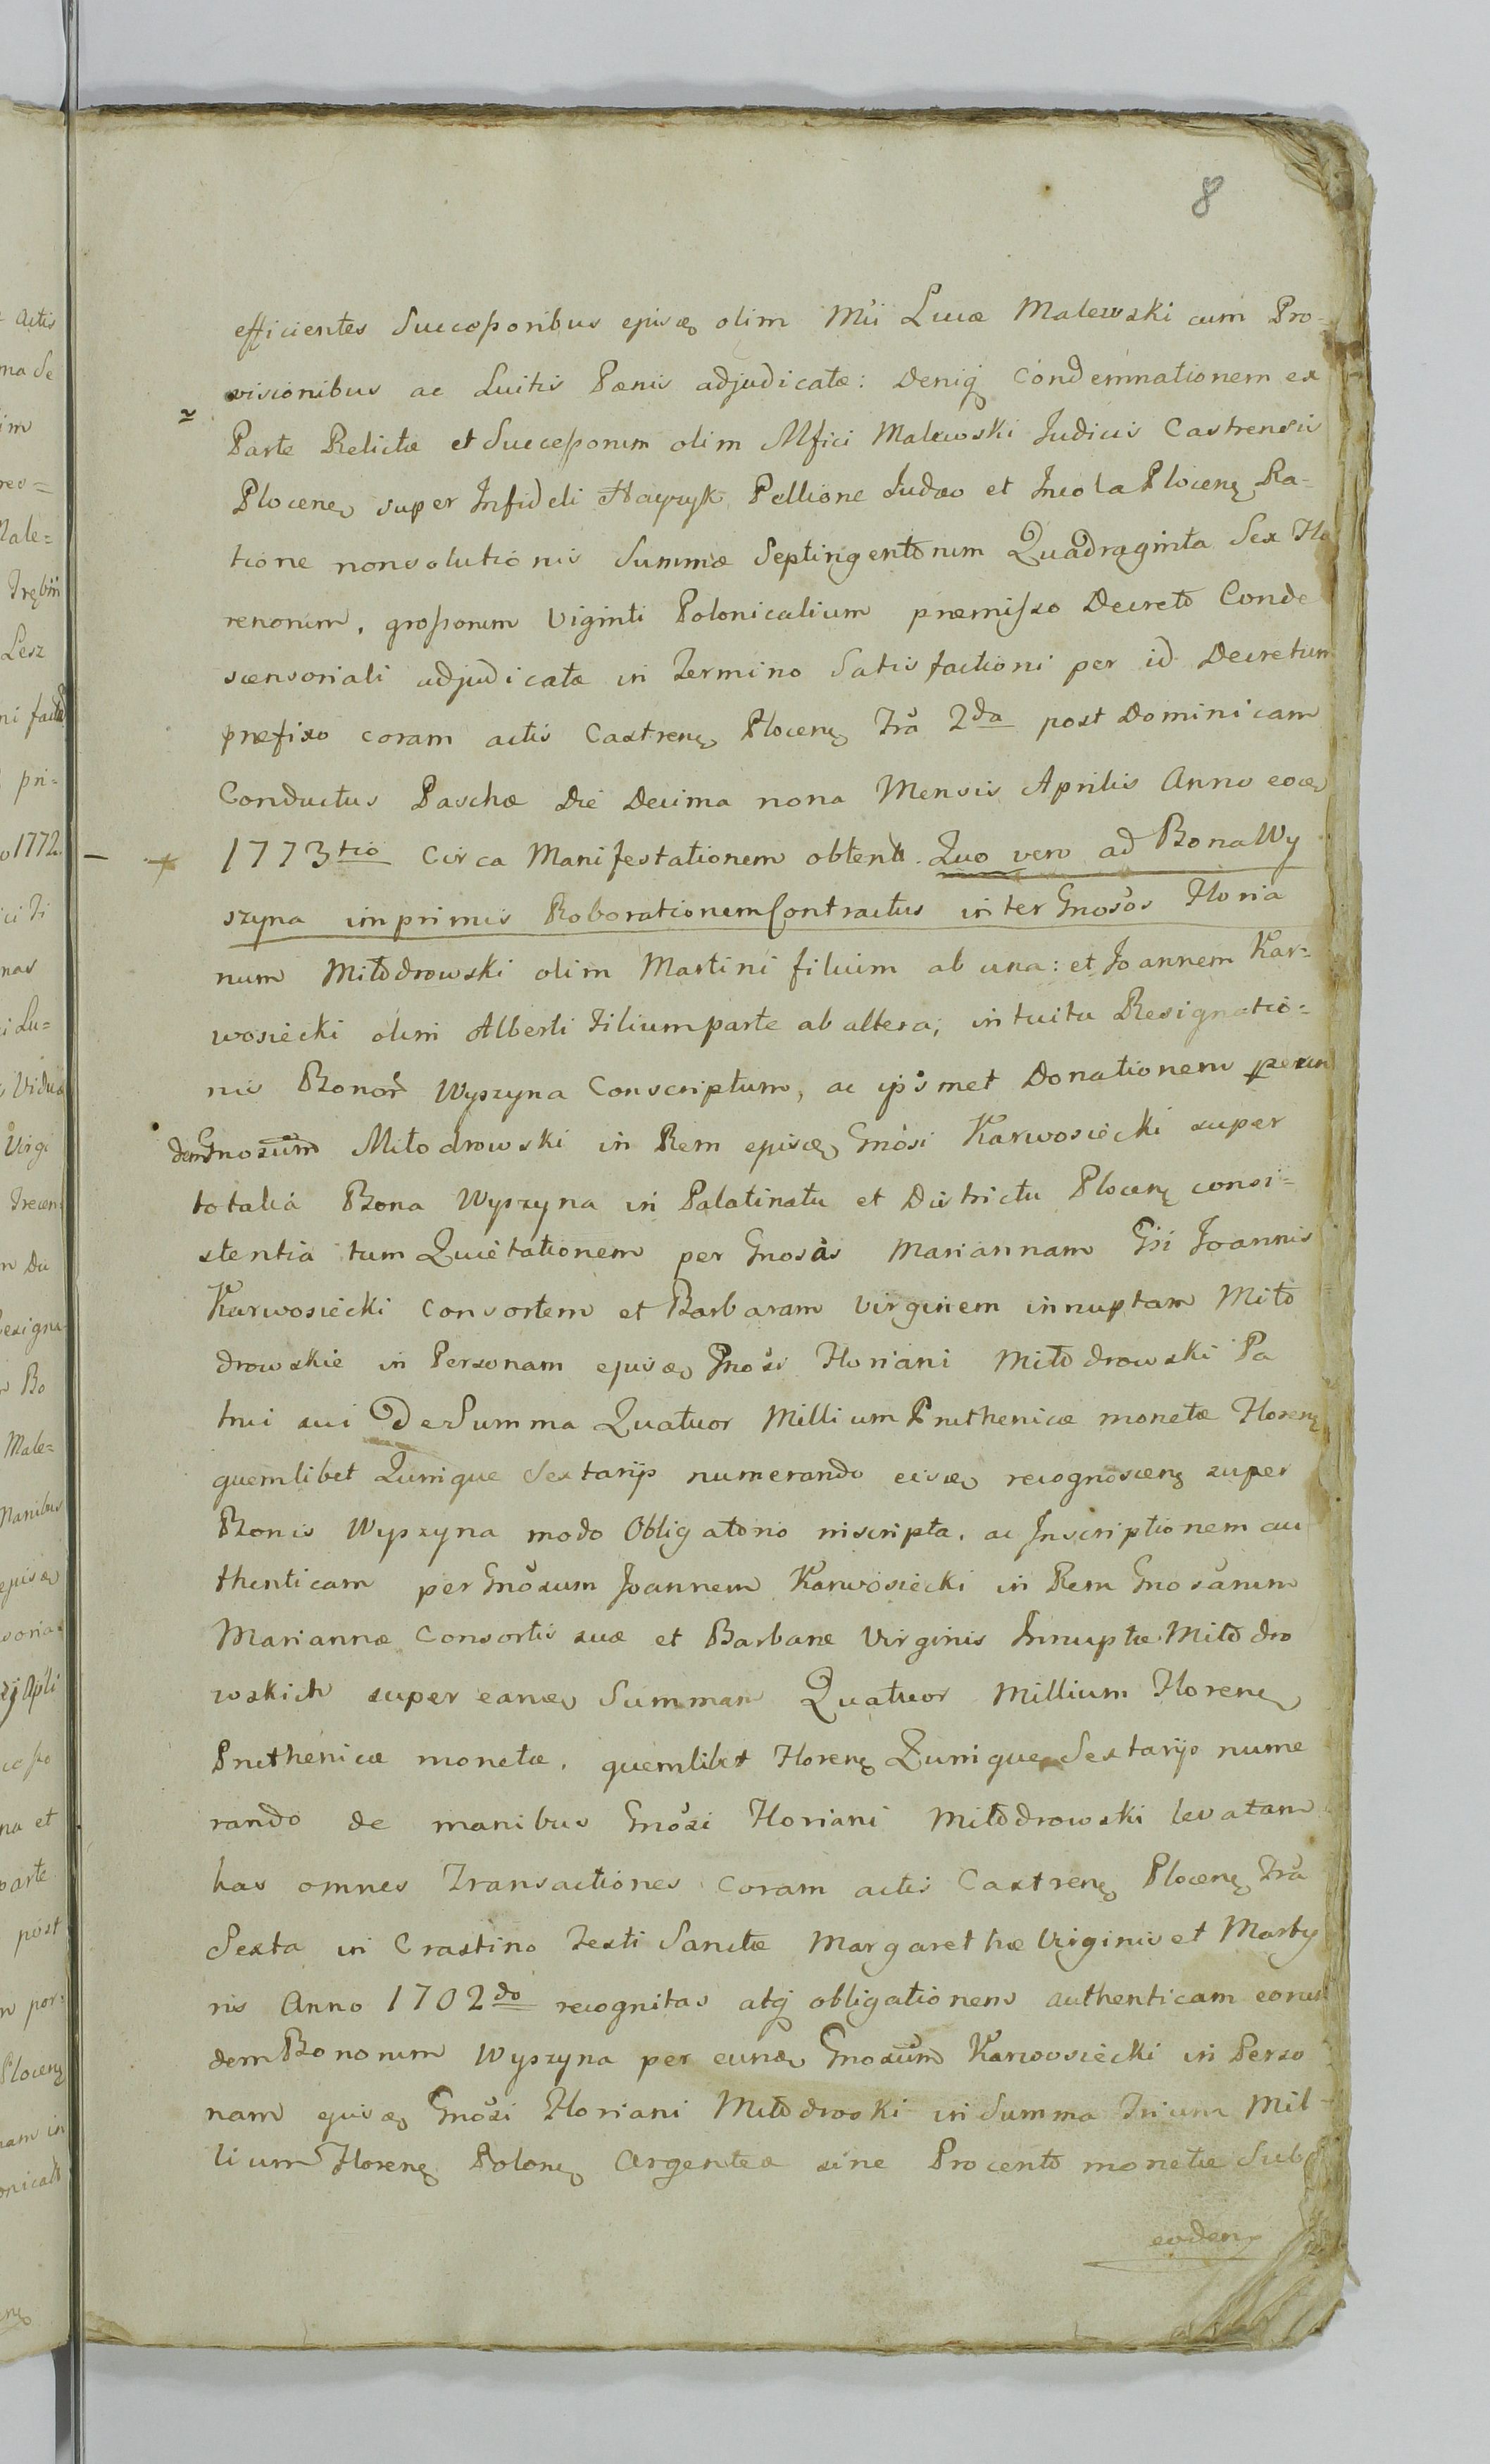 8
efficientes Succeßoribus ejusd olim Mci Lucæ Malewski cum Pro=
visionibus ac Luitis Pænis adjudicatæ: Deniq Condemnationem ex
Parte Relictæ et Succeßorum olim Mfici Malewski Judicis Castrensis
Plocens super Infideli Pellione Judæo et Incola Plocens Ra-
tione nonsolutionis Summæ Septingentorum Quadraginta Sex Flo
renorum, großorum Viginti Polonicalium præmißo Decreto Conde
scensoriali adjudicatæ in Termino Satisfactioni per id Decretum
præfixo coram actis Castrens Plocens Fra 2da post Dominicam
Conductus Paschæ Die Decima nona Mensis Aprilis Anno eod
1773tio Circa Manifestationem obtent. Quo vero ad Bona Wy
szyna imprimis Roborationem Contractus inter Gnosos Floria
num Miłodrowski olim Martini filium ab una: et Joannem Kar=
wosiecki olim Alberti Filium parte ab altera, intuitu Resignatio=
nis Bonor Wyszyna Conscriptum, ac ipsmet Donationem per eun
dem Gnosum Miłodrowski in Rem ejusd Gnosi Karwosiecki super
totalia Bona Wyszyna in Palatinatu et Districtu Plocens consi=
stentia tum Quietationem per Gnosas Mariannam Gsi Joannis
Karwosiecki Consortem et Barbaram Virginem innuptam Miło
drowskie in Personam ejusd Gnosi Floriani Miłodrowski Pa
trui sui De Summa Quatuor Millium Pruthenicæ monetæ Florens
quemlibet Quinque Sextarijs numerando eisd recognoscens super
Bonis Wyszyna modo Obligatorio inscripta, ac Inscriptionem au
thenticam per Gnosum Joannem Karwosiecki in Rem Gnosarum
Mariannæ Consortis suæ et Barbaræ Virginis Innuptæ Miłodro
wskich super eand Summam Quatuor Millium Florens
Pruthenicæ monetæ, quemlibet Florens Quinque Sextarijs nume
rando de manibus Gnosi Floriani Miłodrowski levatam
has omnes Transactiones coram actis Castrens Plocens Fra
Sexta in Crastino Festi Sanctæ Margarethæ Virginis et Marty
ris Anno 1702do recognitas atq obligationem authenticam eorun
dem Bonorum Wyszyna per eund Gnosum Karwosiecki in Perso
nam ejusd Gnosi Floriani Miłodroski in Summa Trium Mil-
lium Florens Polons Argenteæ sine Procento monetæ Sub
eodem